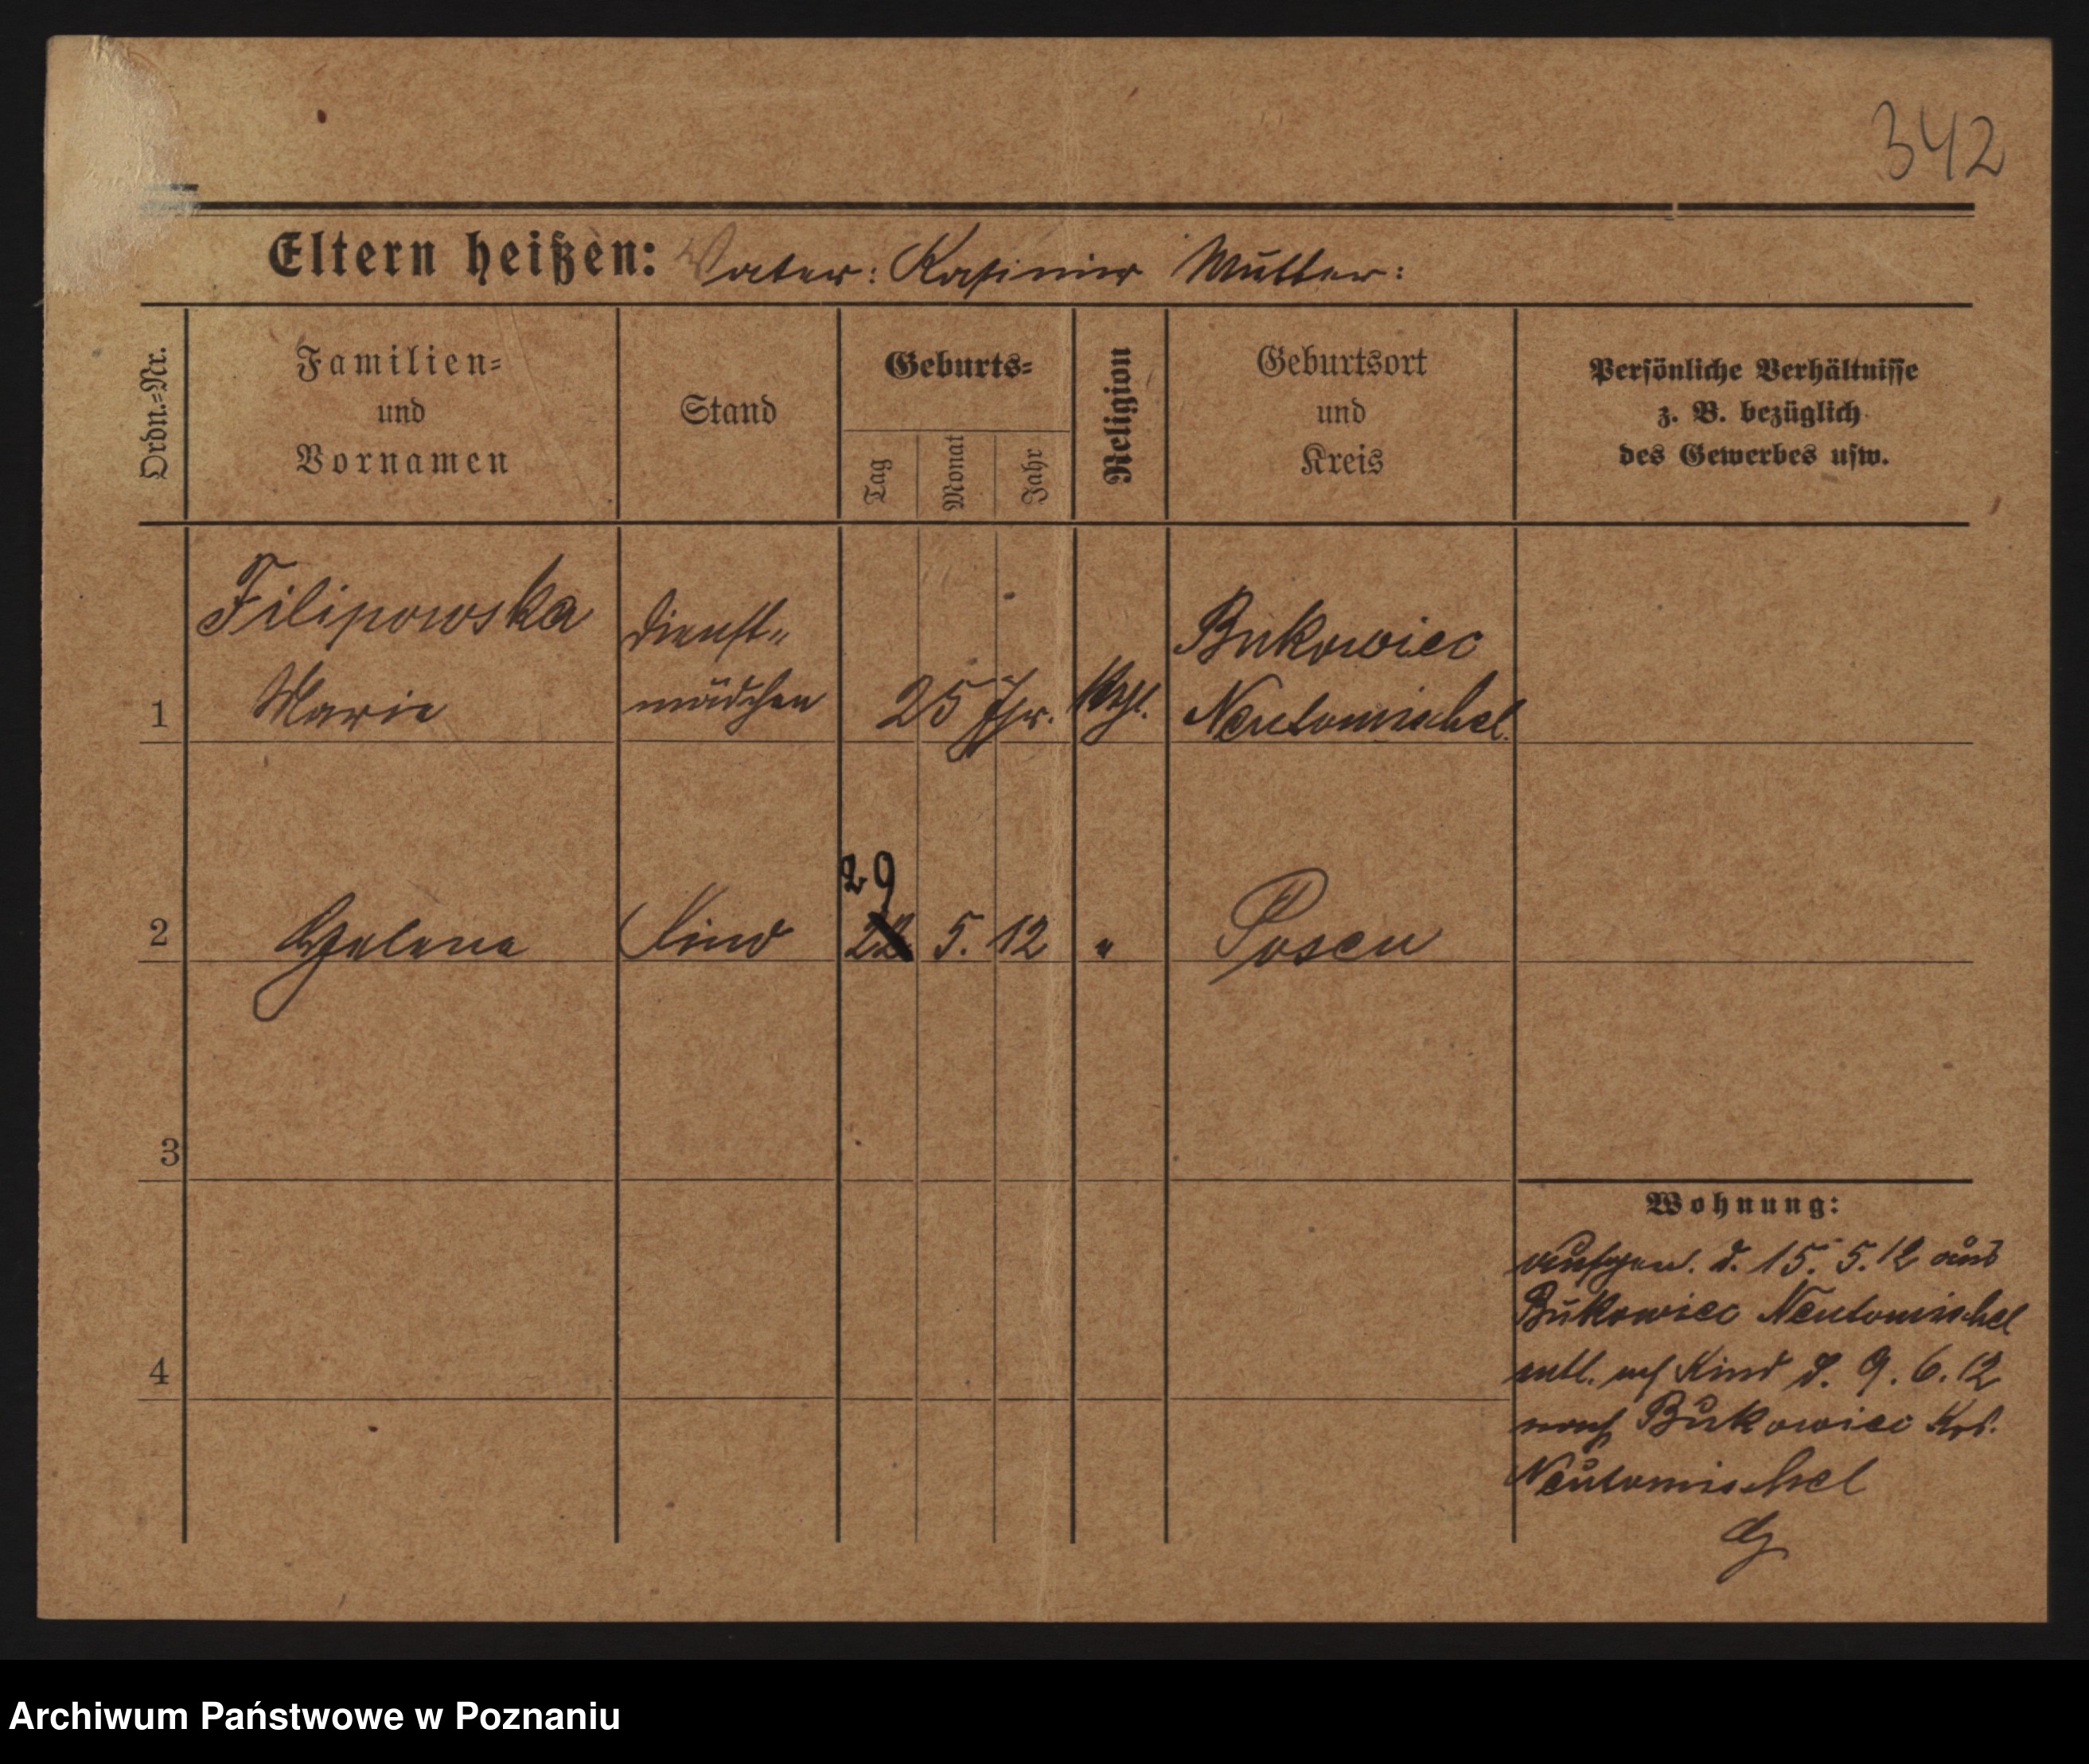 342
Eltern heißen: Vater: Kasimir Mutter:
Ordn.-Nr.
Familien-
und
Vornamen
Stand
Geburts-
Tag
Monat
Jahr
Religion
Geburtsort
und
Kreis
Persönliche Verhältnisse
z. B. bezüglich
des Gewerbes usw.
Filipowska
Dienst-
Bukowiec
1 Marie mädchen 25 Jhr. Neutomischel.
29
2 Helene Kind 22 5. 12 " Posen
3
Wohnung:
aufgen. d. 15. 5. 12 aus
Bukowiec Neutomischel
4
entl. Kind d. 9. 6. 12
nach Bukowiec Krs.
Neutomischel
Archiwum Państwowe w Poznaniu